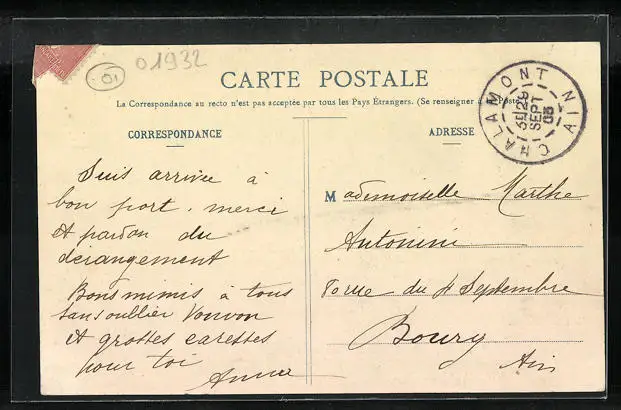 01932
CARTE POSTALE
La Correspondance au recto n'est pas acceptée par tous les Pays Étrangers. (Se renseigner à la Poste
CORRESPONDANCE
ADRESSE
CHALAMONT AIN
29
SEPT
Suis arrivée à
bon port. merci
et pardon du
dérangement
Bons mimis à tous
sans oublier
et grosses caresses
pour toi
Anna
Mademoiselle Marthe
Antonini
rue du 4 Septembre
Bourg
Ain